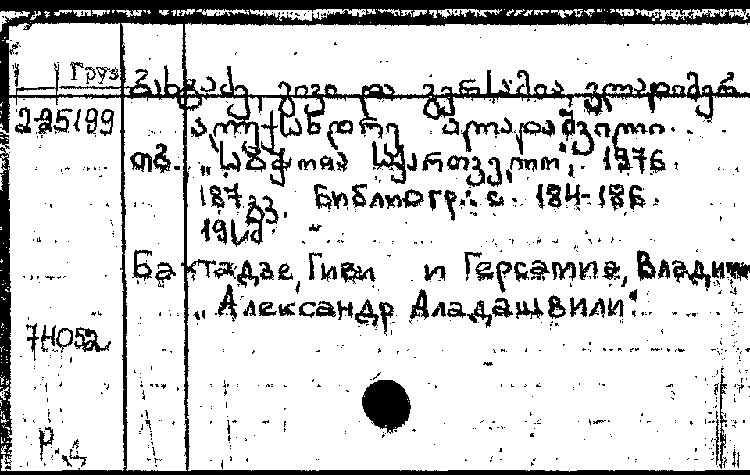 Груз
ბახტაძე, გივი და გერსამია, ვლადიმერ
2-25199
ალექსანდრე ალადაშვილი.
თბ. „საბჭოთა საქართველო“, 1976.
187 გვ. Библиогр.: с. 184-186.
19სმ
Бахтадзе, Гиви и Герсамиа, Владим
„Александр Аладашвили“.
7Н052
Р.Д